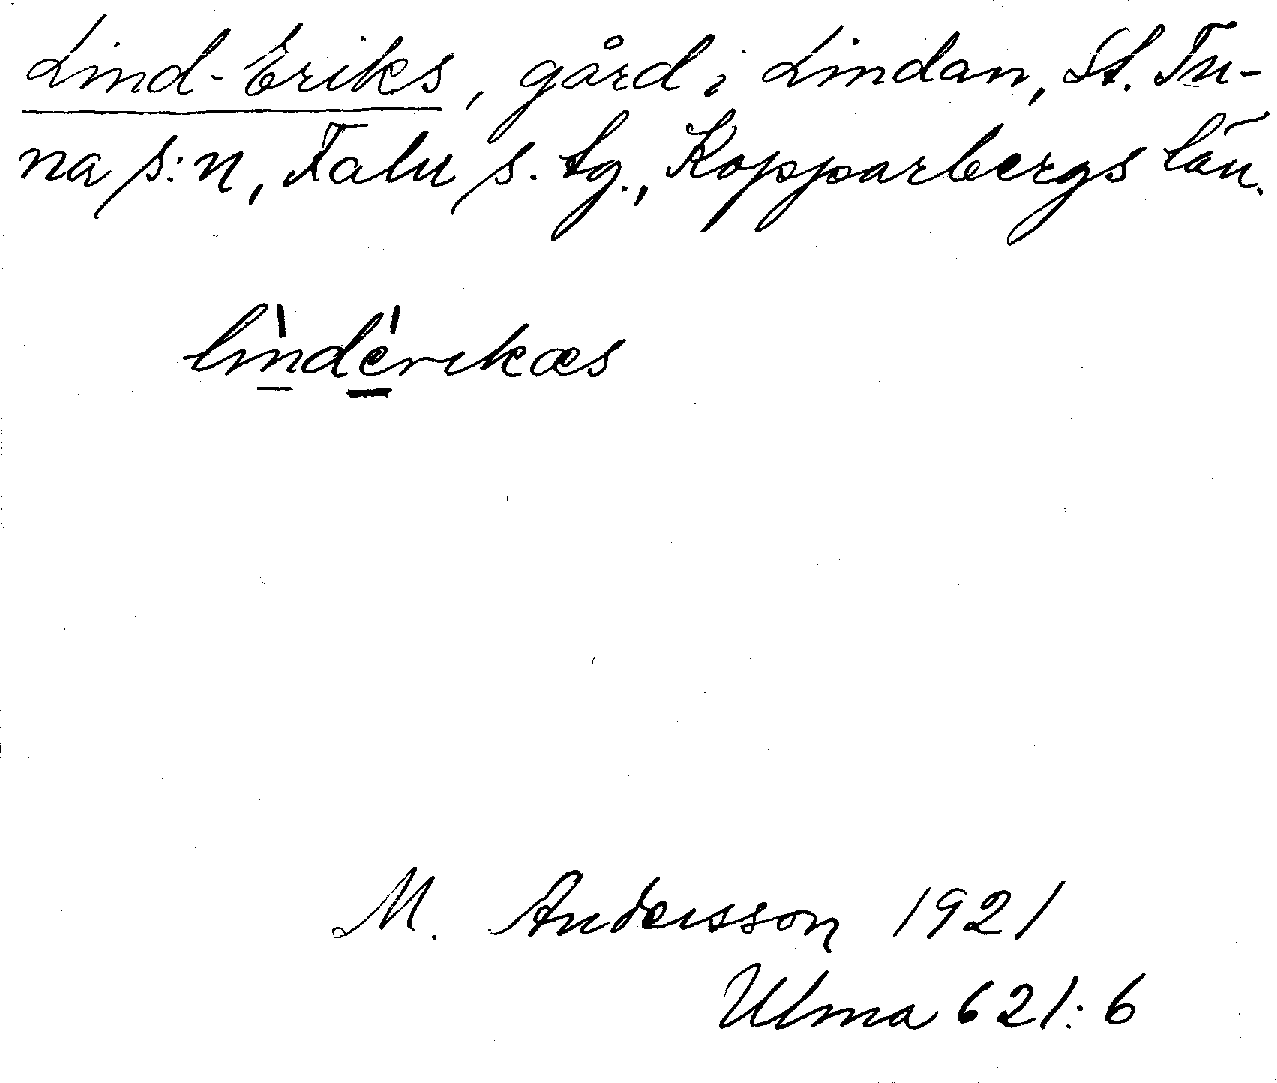 Lind-Eriks, gård i Lindan, St. Tu-
na s:n, Falu s. tg., Kopparbergs län.
lìndérikæs
M. Andersson 1921
Ulma 621:6